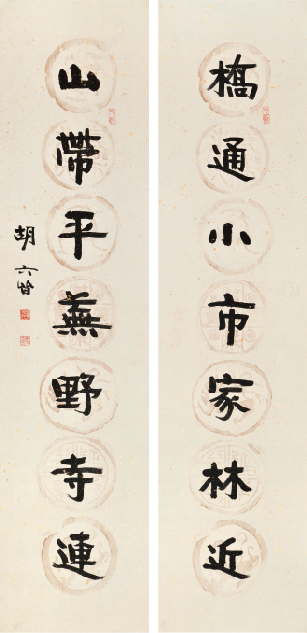 橋通小市家林近
山帶平蕪野寺連
胡六皆